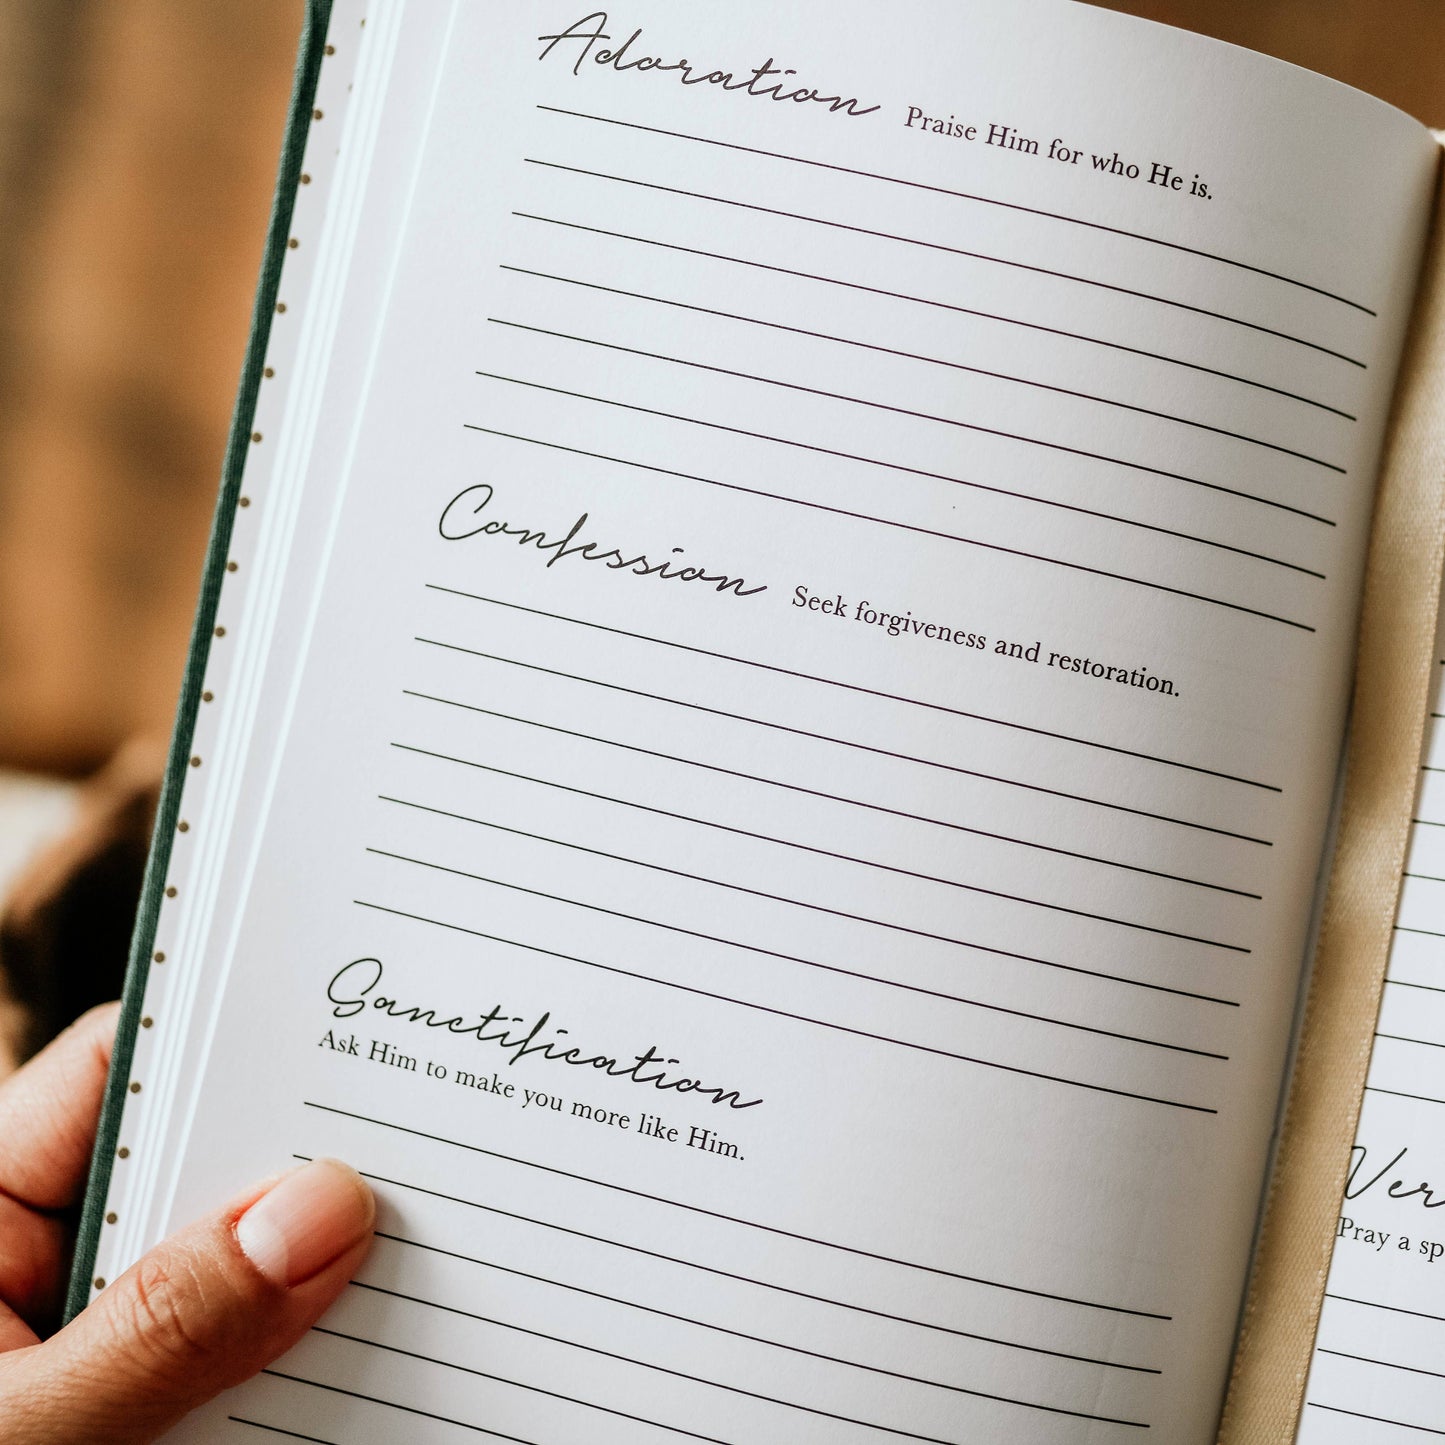 Adoration Praise Him for who He is.
Confession Seek forgiveness and restoration.
Sanctification
Ask Him to make you more like Him.
Pray a